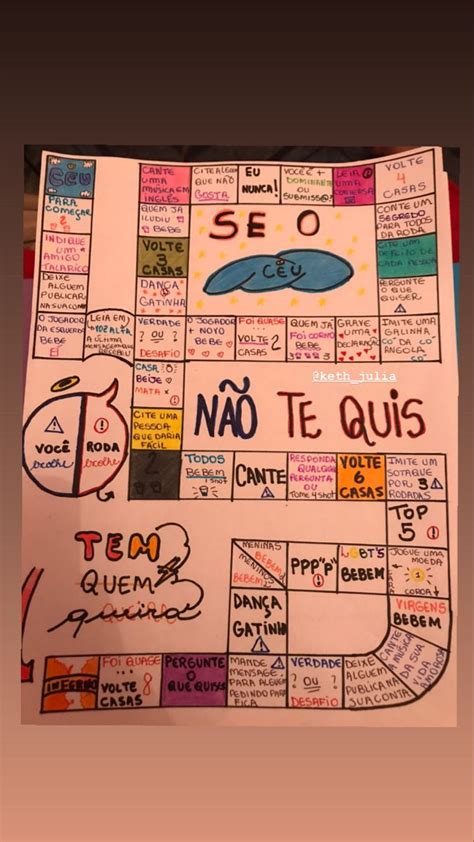 CÉU
PARA
COMEÇAR
INDIQUE
UM
AMIGO
TALARICO
DEIXE
ALGUEM
PUBLICAR
NA SUA CONTA
O JOGADOR
DA ESQUERDA
BEBE
LEIA EM
VOZ ALTA
A ÚLTIMA
MENSAGEM QUE
RECEBEU
VERDADE
? OU ?
DESAFIO
DANÇA
GATINHA
VOLTE
3
CASAS
QUEM JÁ
ILUDIU
BEBE
CANTE
UMA
MUSICA EM
INGLÊS
CITE ALGO
QUE NÃO
GOSTA
EU
NUNCA!
VOCÊ É +
DOMINADOR
OU
SUBMISSO?
LEIA
UMA
CONVERSA
VOLTE
4
CASAS
CONTE UM
SEGREDO
PARA TODOS
DA RODA
CITE UM
DEFEITO DE
CADA PESSOA
PERGUNTE
O QUE
QUISER
IMITE UMA
GALINHA
DA
ANGOLA
GRAVE
UMA
DECLARAÇÃO
QUEM JÁ
FOI CORNO
BEBE
FOI QUASE
...
VOLTE 2
CASAS
O JOGADOR
+ NOVO
BEBE
SE O
CÉU
@keth_julia
NÃO TE QUIS
CASA,
BEIJE
MATA
CITE UMA
PESSOA
QUE DARIA
FÁCIL
2
TODOS
BEBEM
1 SHOT
CANTE
RESPONDA
QUALQUER
PERGUNTA
OU
TOME 4 SHOT
VOLTE
6
CASAS
IMITE UM
SOTAQUE
POR 3
RODADAS
TOP
5
JOGUE UMA
MOEDA
1
COROA
VIRGENS
BEBEM
CANTE
A MÚSICA
DA SUA
VIDA
AMOROSA
DEIXE
ALGUEM
PUBLICA NA
SUA CONTA
VERDADE
? OU ?
DESAFIO
MANDE
MENSAGE
PARA ALGUEM
PEDINDO PARA
FICA
PERGUNTE
O
QUE QUISER
FOI QUASE
...
VOLTE 8
CASAS
INFERNO
VOCÊ
escolhe
RODA
escolhe
TEM
QUEM
queira
MENINAS
BEBEM
MENINOS
BEBEM
PPP"P"
LGBT'S
BEBEM
DANÇA
GATINHO